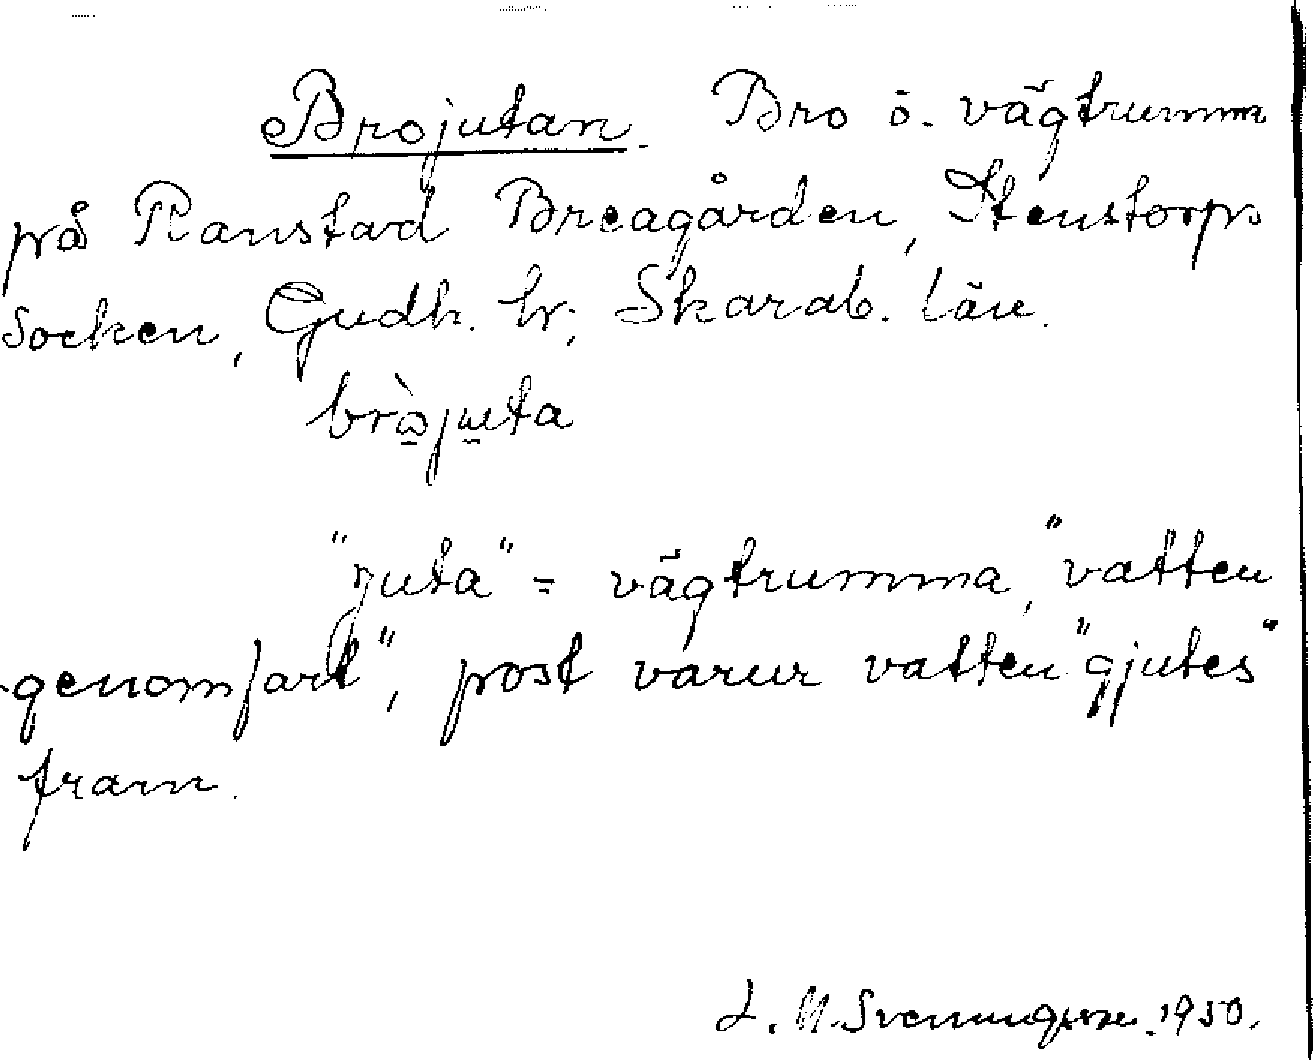 Brojutan. Bro o. vägtrumma
på Ranstad Breagården, Stenstorps
socken, Gudh. hr; Skarab. län.
bròjuta
"juta" = vägtrumma, "vatten
-genomfart", post varur vatten "gjutes"
fram.
L. M. Svenungsson. 1950.